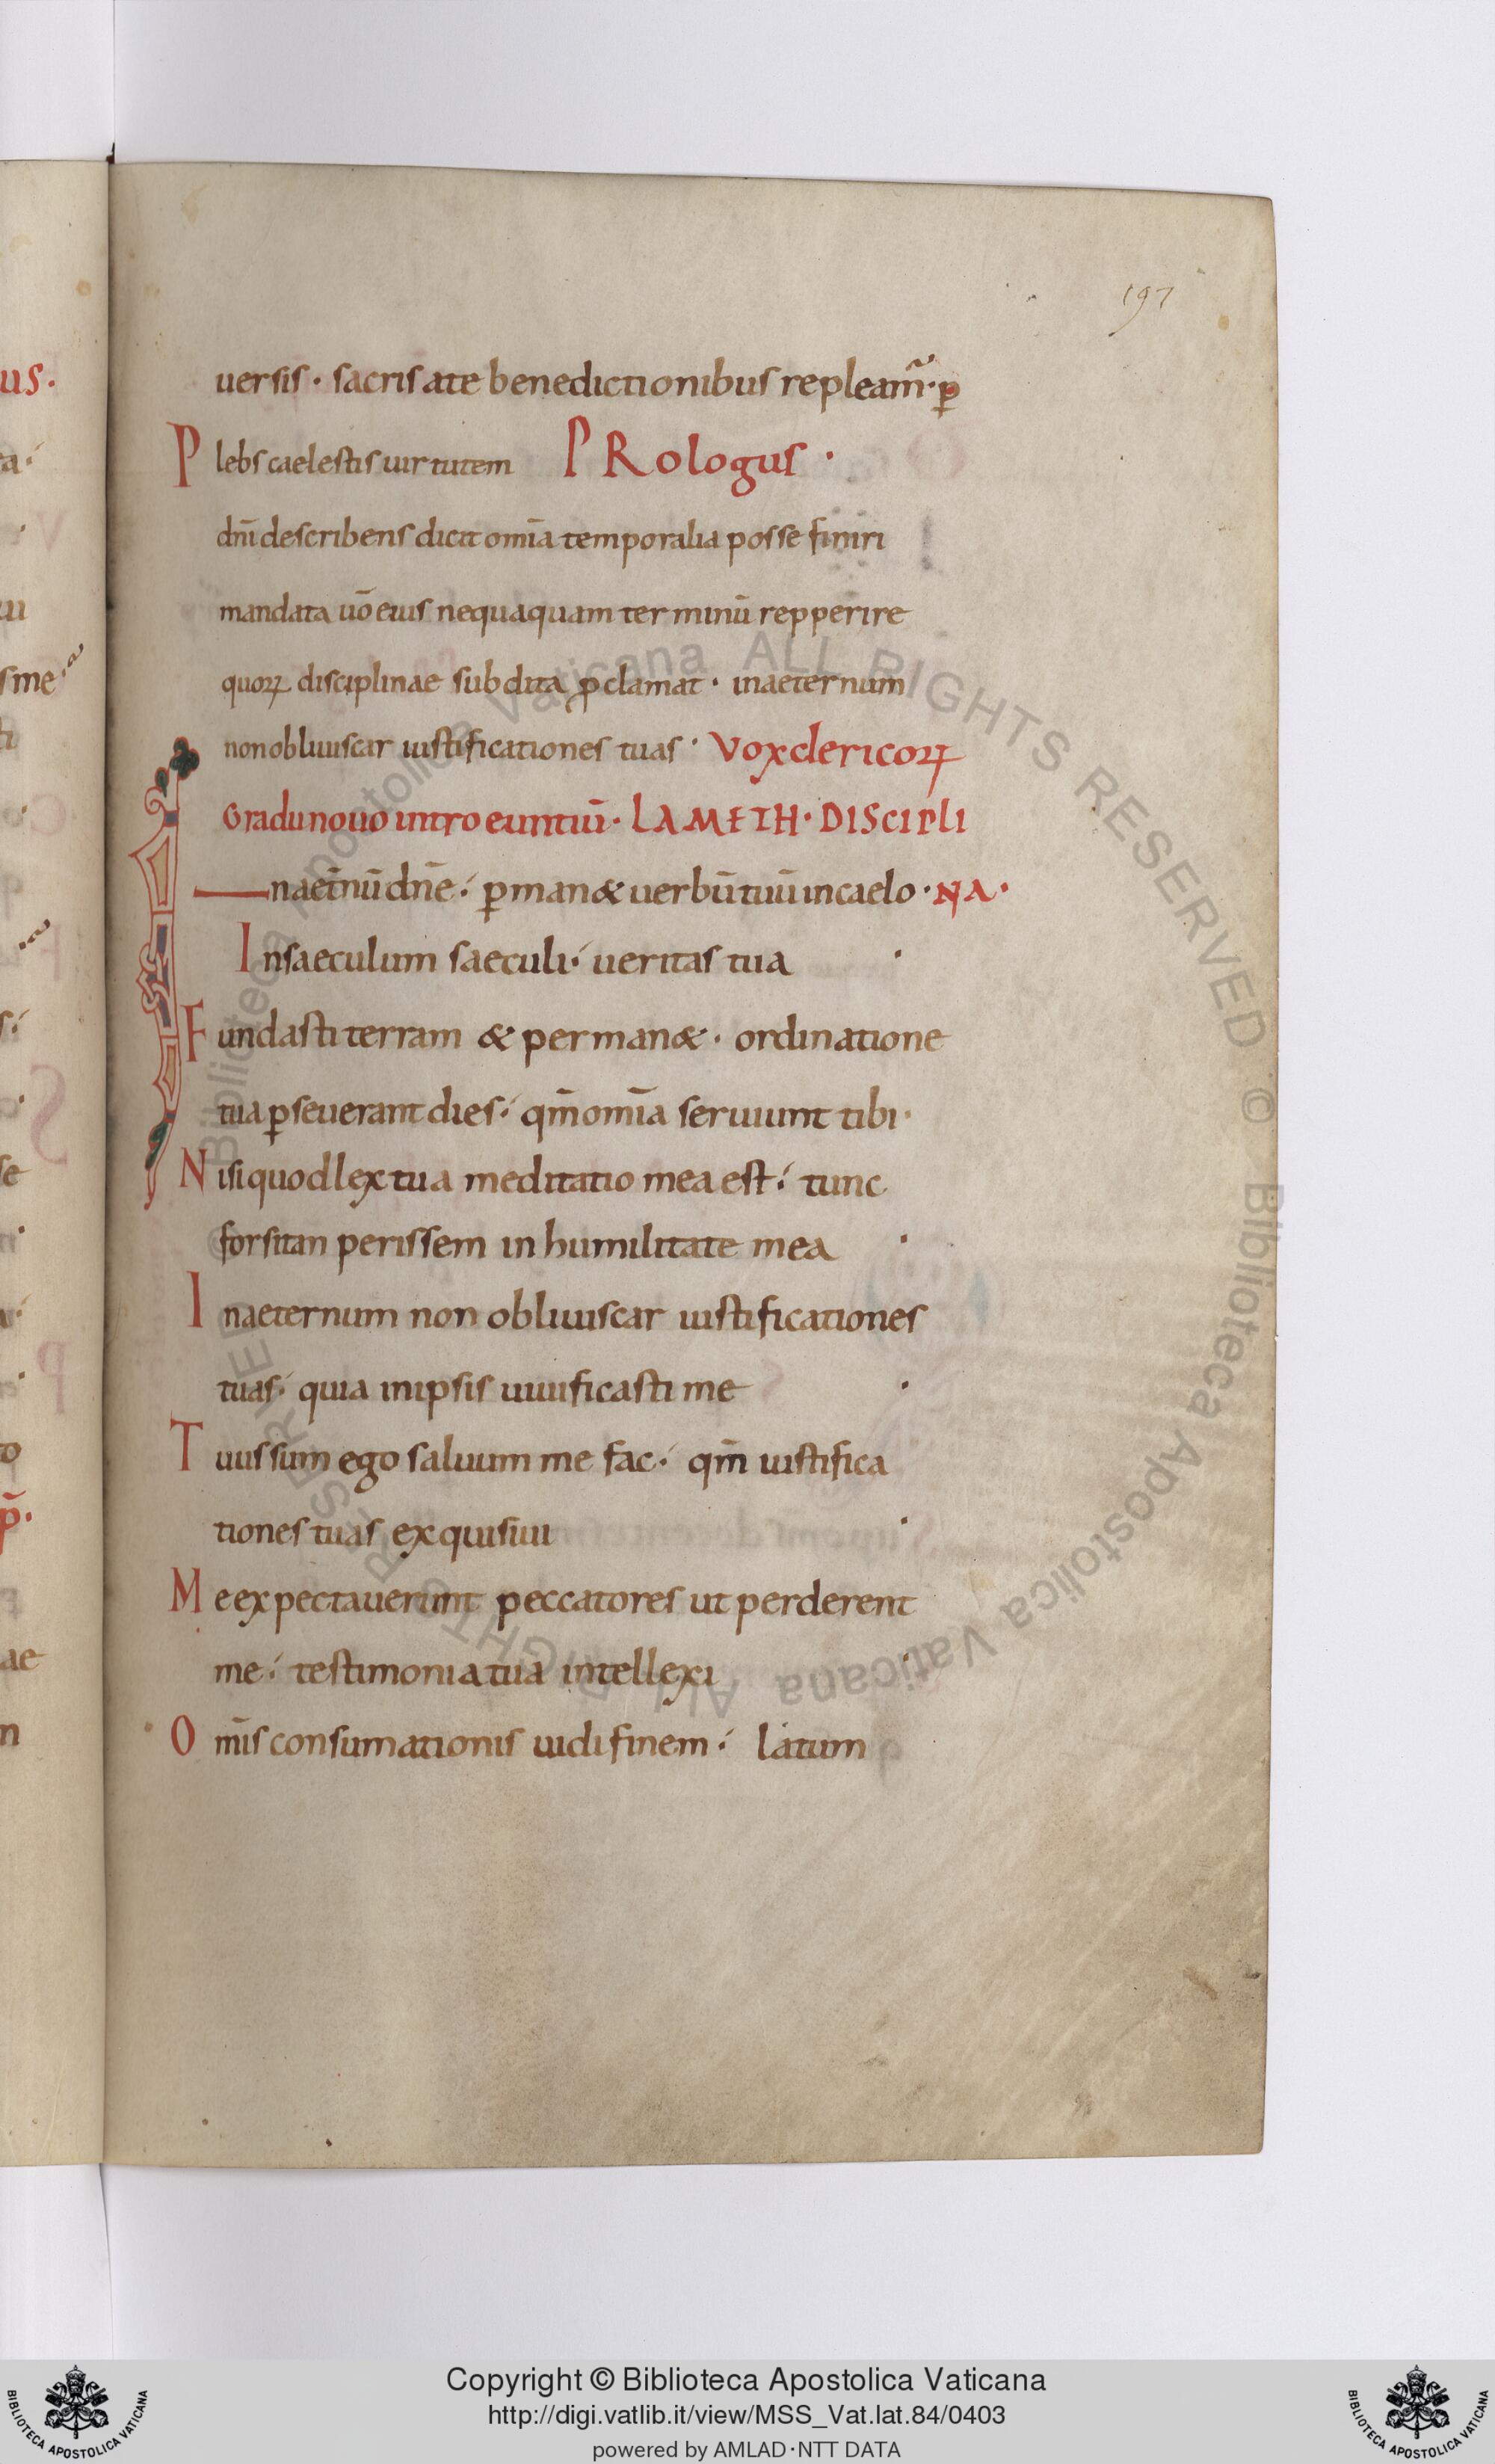 197
uersis · sacris ate benedictionibus repleam̃ · ꝑ
Plebs caelestis uirtutem PRologus ·
dñi describens dicit om̄ia temporalia posse finiri
mandata uō eius nequaquam terminū repperire
quoꝝ disciplinae subdita ꝓclamat · inaeternum
non obliuiscar iustificationes tuas · Vox clericoꝝ
Gradu nouo introeuntiū · LAMETH · DISCIPLI
Inaet̄nū dn̄e · ꝑman& uerbū tuū in caelo · NA ·
Insaeculum saeculi · ueritas tua ·
Fundasti terram & perman& · ordinatione
tua ꝑseuerant dies · qm̄ om̄ia seruiunt tibi ·
Nisi quod lex tua meditatio mea est · tunc
forsitan perissem in humilitate mea ·
Inaeternum non obliuiscar iustificationes
tuas · quia inipsis uiuificasti me ·
Tuus sum ego saluum me fac · qm̄ iustifica
tiones tuas exquisiui ·
Me expectauerunt peccatores ut perderent
me · testimonia tua intellexi ·
Om̄is consumationis uidi finem · latum
us.
Copyright © Biblioteca Apostolica Vaticana
http://digi.vatlib.it/view/MSS_Vat.lat.84/0403
powered by AMLAD·NTT DATA
BIBLIOTECA APOSTOLICA VATICANA
BIBLIOTECA APOSTOLICA VATICANA
Biblioteca Apostolica Vaticana ALL RIGHTS RESERVED © Biblioteca Apostolica Vaticana ALL RIGHTS RESERVED ©